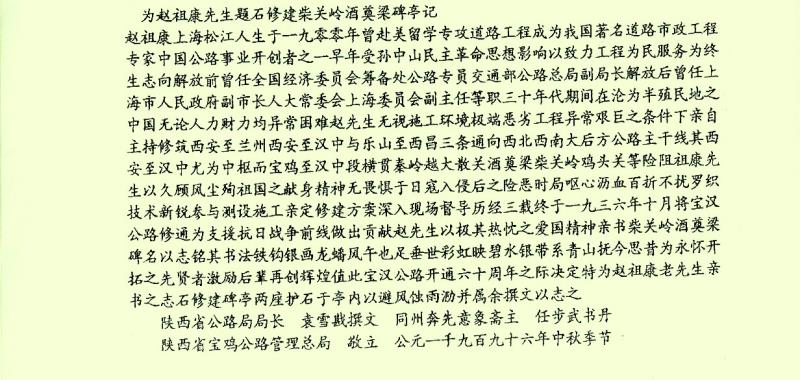 为赵祖康先生题石修建柴关岭酒奠梁碑亭记
赵祖康上海松江人生于一九零零年曾赴美留学专攻道路工程成为我国著名道路市政工程
专家中国公路事业开创者之一早年受孙中山民主革命思想影响以致力工程为民服务为终
生志向解放前曾任全国经济委员会筹备处公路专员交通部公路总局副局长解放后曾任上
海市人民政府副市长人大常委会上海委员会副主任等职三十年代期间在沦为半殖民地之
中国无论人力财力均异常困难赵先生无视施工环境极端恶劣工程异常艰巨之条件下亲自
主持修筑西安至兰州西安至汉中与乐山至西昌三条通向西北西南大后方公路主干线其西
安至汉中尤为中枢而宝鸡至汉中段横贯秦岭越大散关酒奠梁柴关岭鸡头关等险阻祖康先
生以久顾风尘殉祖国之献身精神无畏惧于日寇入侵后之险恶时局呕心沥血百折不扰罗织
技术新锐参与测设施工亲定修建方案深入现场督导历经三载终于一九三六年十月将宝汉
公路修通为支援抗日战争前线做出贡献赵先生以极其热忱之爱国精神亲书柴关岭酒奠梁
碑名以志铭其书法铁钩银画龙蟠风午也足垂世彩虹映碧水银带系青山抚今思昔为永怀开
拓之先贤者激励后辈再创辉煌值此宝汉公路开通六十周年之际决定特为赵祖康老先生亲
书之志石修建碑亭两座护石于亭内以避风蚀雨泐并属余撰文以志之
陕西省公路局局长 袁雪戡撰文 同州奔先意象斋主 任步武书丹
陕西省宝鸡公路管理总局 敬立 公元一千九百九十六年中秋季节